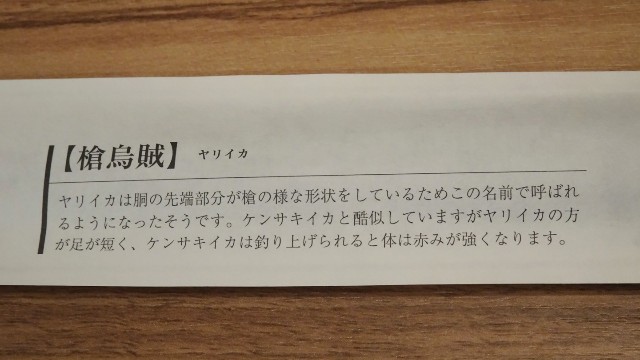 【槍烏賊】 ヤリイカ
ヤリイカは胴の先端部分が槍の様な形状をしているためこの名前で呼ばれ
るようになったそうです。ケンサキイカと酷似していますがヤリイカの方
が足が短く、ケンサキイカは釣り上げられると体は赤みが強くなります。